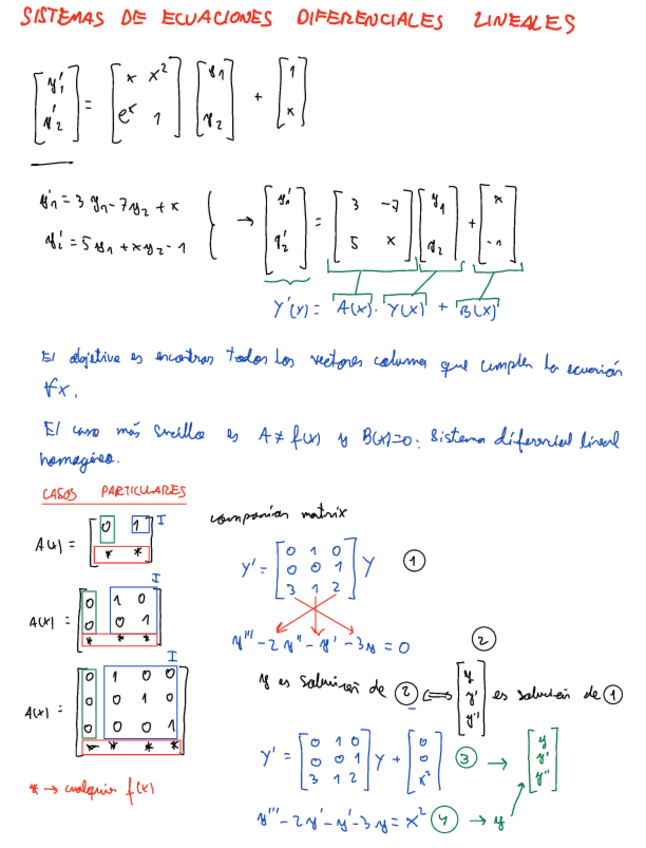 SISTEMAS DE ECUACIONES DIFERENCIALES LINEALES
[y'1 ; y'2] = [x x² ; eˣ 1] [y1 ; y2] + [1 ; x]
y'1 = 3y1 - 7y2 + x
y'2 = 5y1 + xy2 - 1
→ [y1' ; y2'] = [3 -7 ; 5 x] [y1 ; y2] + [x ; -1]
Y'(x) = A(x) · Y(x) + B(x)
El objetivo es encontrar todos los vectores columna que cumplen la ecuación
∀x.
El caso más sencillo es A ≠ f(x) y B(x)=0: Sistema diferencial lineal
homogéneo.
CASOS PARTICULARES
A(x) = [0 1 ; * *] I
A(x) = [0 1 0 ; 0 0 1 ; * * *] I
A(x) = [0 1 0 0 ; 0 0 1 0 ; 0 0 0 1 ; * * * *] I
* → cualquier f(x)
companion matrix
Y' = [0 1 0 ; 0 0 1 ; 3 1 2] Y ①
y''' - 2y'' - y' - 3y = 0 ②
y es solución de ② ⟺ [y ; y' ; y''] es solución de ①
Y' = [0 1 0 ; 0 0 1 ; 3 1 2] Y + [0 ; 0 ; x²] ③ → [y ; y' ; y'']
y''' - 2y' - y' - 3y = x² ④ → y